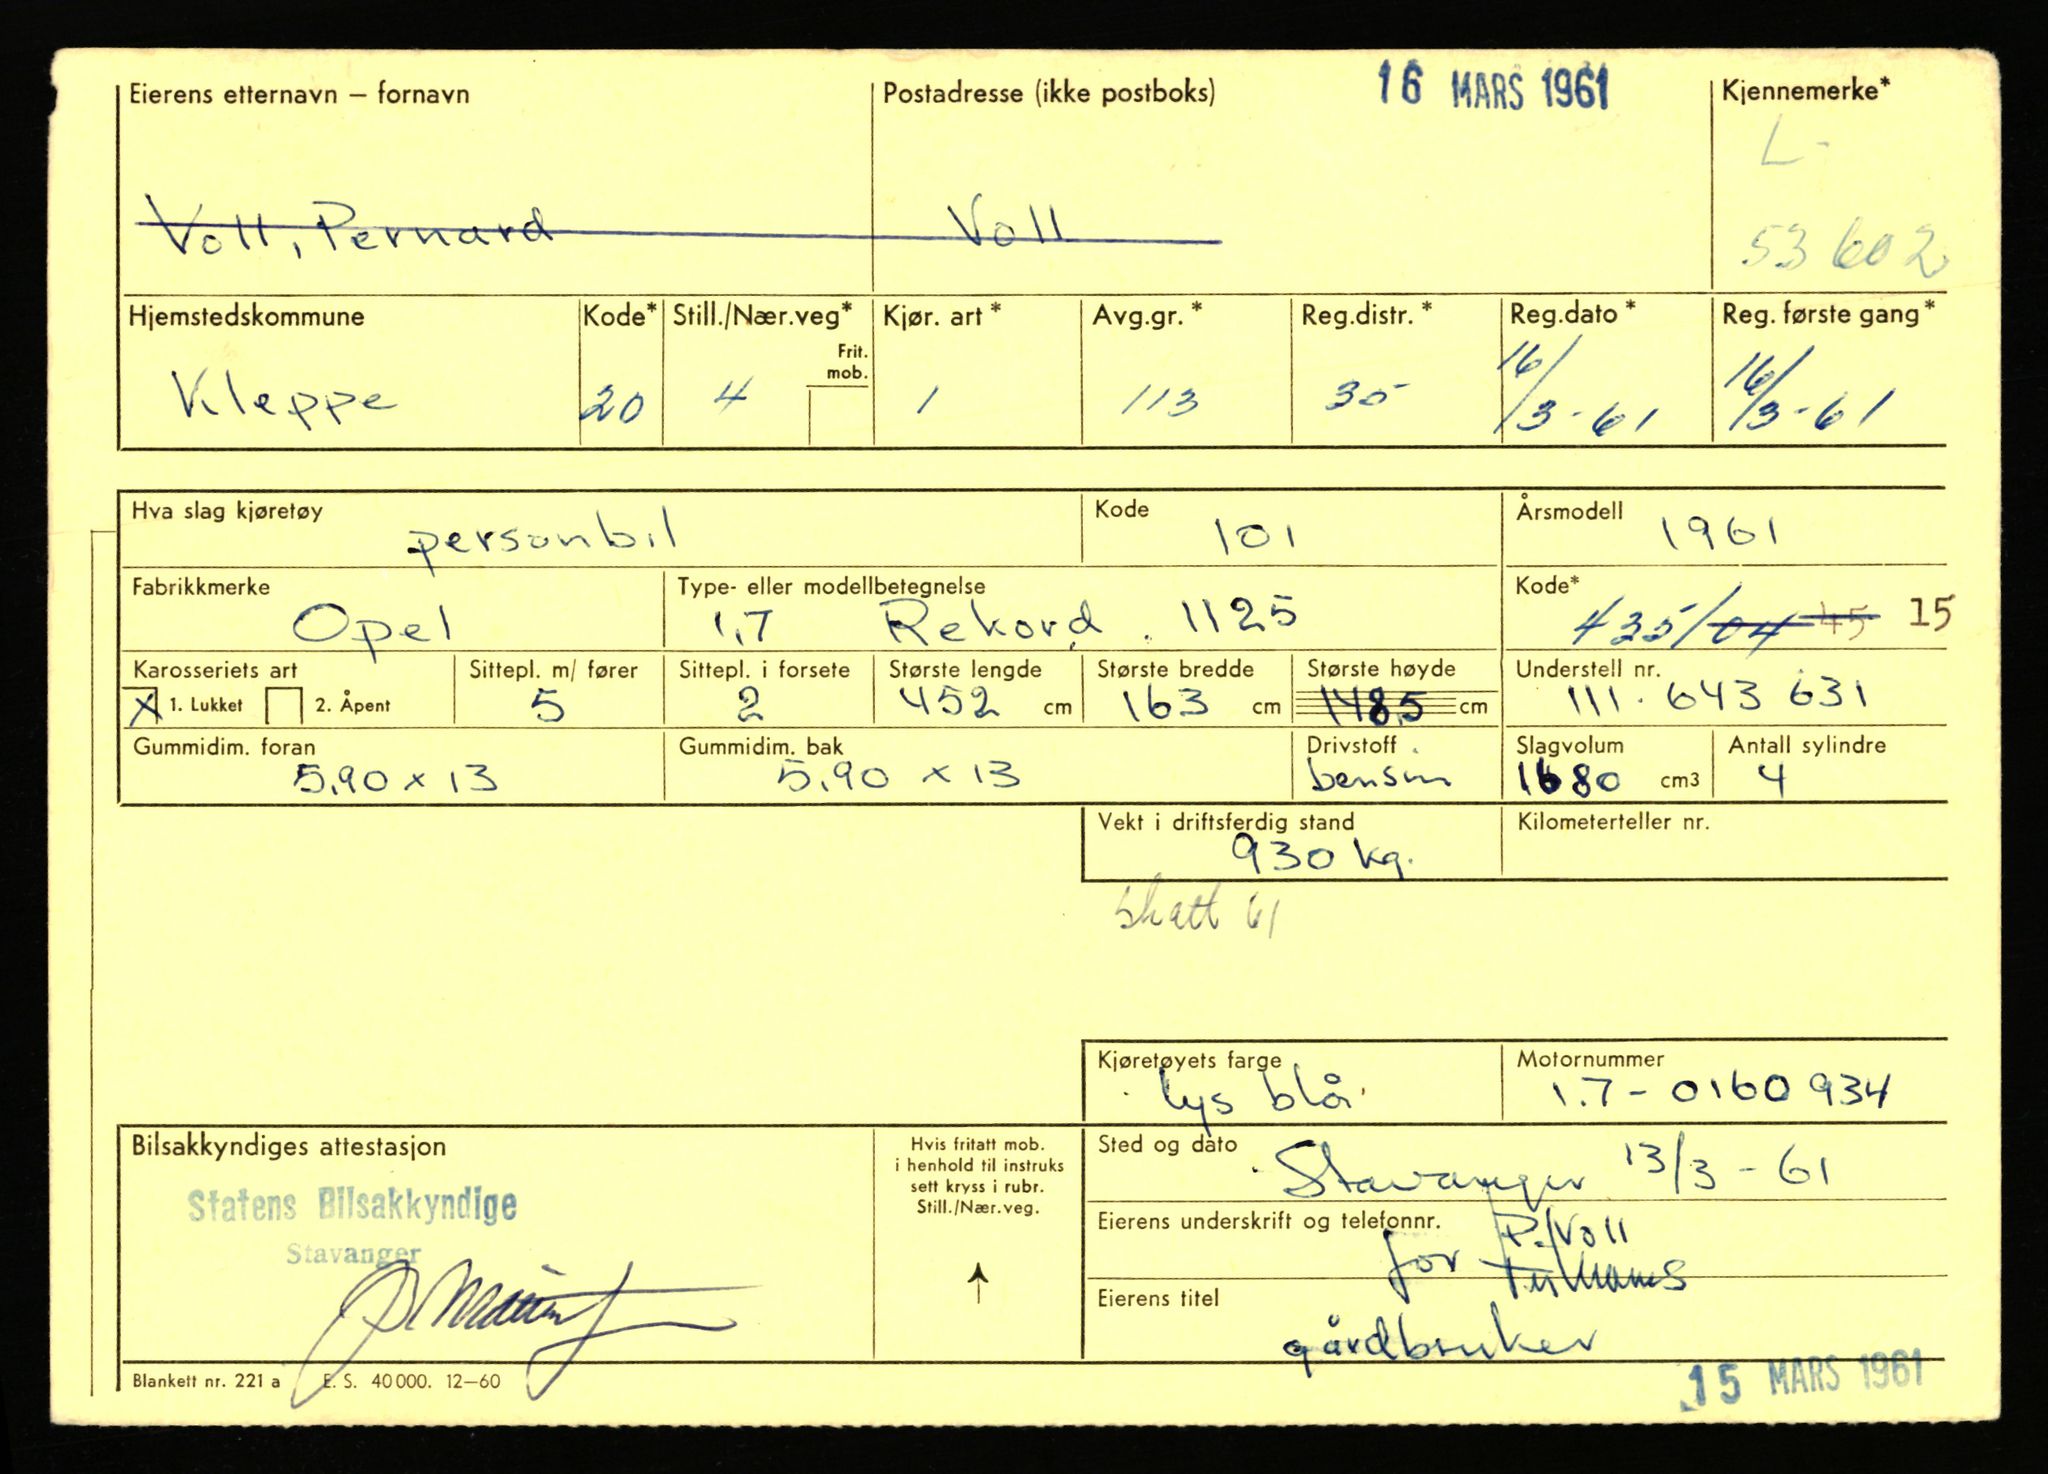 Eierens etternavn – fornavn Postadresse (ikke postboks) 16 MARS 1961 Kjennemerke*
L-
Voll, Pernard Voll 53602
Hjemstedskommune Kode* Still./Nær.veg* Kjør. art* Avg.gr.* Reg.distr.* Reg.dato* Reg. første gang*
Frit. mob.
Kleppe 20 4 1 113 35 16/3-61 16/3-61
Hva slag kjøretøy personbil Kode 101 Årsmodell 1961
Fabrikkmerke Type- eller modellbetegnelse Kode*
Opel 1,7 Rekord 1125 435/04 45 15
Karosseriets art Sittepl. m/ fører Sittepl. i forsete Største lengde Største bredde Største høyde Understell nr.
X 1. Lukket 2. Åpent 5 2 452 cm 163 cm 148,5 cm 111.643 631
Gummidim. foran Gummidim. bak Drivstoff Slagvolum Antall sylindre
5,90 x 13 5,90 x 13 bensin 1680 cm3 4
Vekt i driftsferdig stand Kilometerteller nr.
930 kg.
skatt 61
Kjøretøyets farge Motornummer
lys blå 1.7-0160934
Bilsakkyndiges attestasjon
Statens Bilsakkyndige
Stavanger
Hvis fritatt mob.
i henhold til instruks
sett kryss i rubr.
Still./Nær.veg.
Sted og dato
Stavanger 13/3-61
Eierens underskrift og telefonnr. P. Voll
for
Eierens titel
gårdbruker
Blankett nr. 221 a E. S. 40000. 12–60
15 MARS 1961